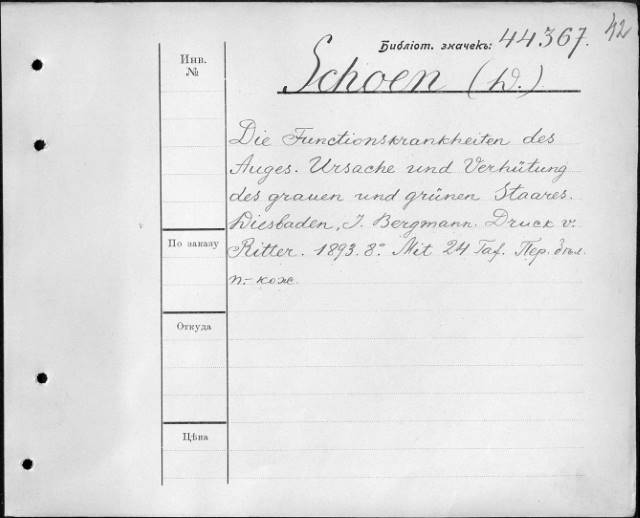 42
Библіот. значекъ: 44367.
Инв.
№
Schoen (W.)
Die Functionskrankheiten des
Auges. Ursache und Verhütung
des grauen und grünen Staares.
Wiesbaden, J. Bergmann. Druck v.
По заказу
Ritter. 1893. 8º Mit 24 Taf. Пер. бѣл.
п.-кож.
Откуда
Цѣна